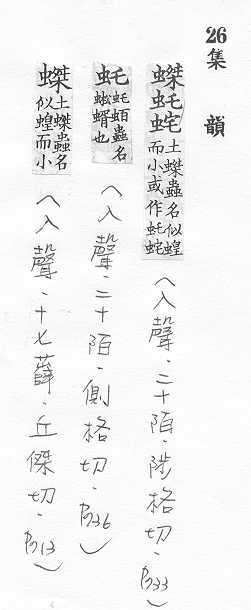 26 集韻
蟍虴蛇 土蟍蟲名似蝗而小或作虴蛇
〈入聲.二十陌.陟格切.p33〉
虴 虴蛨蟲名蚣蝑也
〈入聲.二十陌.側格切.p36〉
蟍 土蟍蟲名似蝗而小
〈入聲.十七薛.丘傑切.p13〉